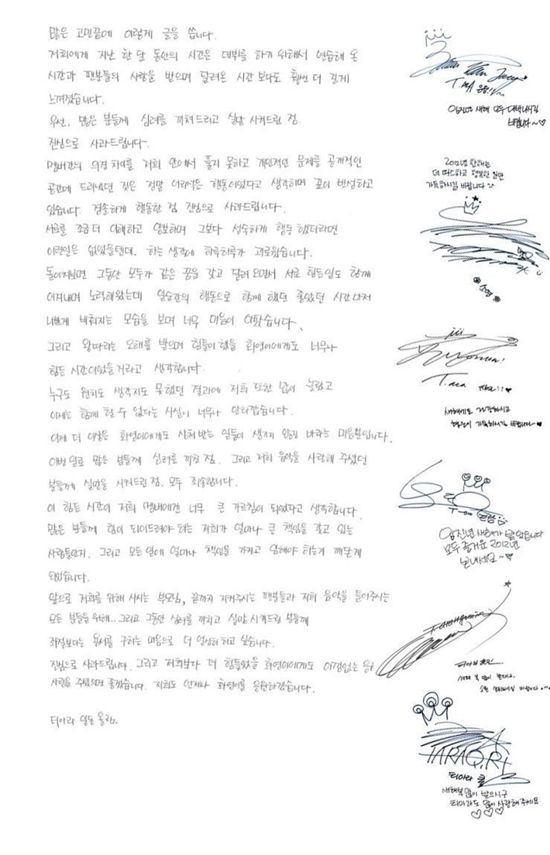 많은 고민끝에 이렇게 글을 씁니다.
저희에게 지난 한 달 동안의 시간은 데뷔를 하기 위해서 연습해 온
시간과 팬분들의 사랑을 받으며 달려온 시간 보다도 훨씬 더 길게
느껴졌습니다.
우선, 많은 분들께 심려를 끼쳐드리고 실망 시켜드린 점
진심으로 사과드립니다.
멤버간의 의견 차이를 저희 안에서 풀지 못하고 개인적인 문제를 공개적인
공간에 드러냈던 것은 정말 어리석은 행동이었다고 생각하며 깊이 반성하고
있습니다. 경솔하게 행동한 점 진심으로 사과드립니다.
서로를 조금 더 이해하고 양보하며 그보다 성숙하게 행동 했더라면
이런일은 없었을텐데. 하는 생각에 하루하루가 괴로웠습니다.
돌이켜보면 그동안 모두가 같은 꿈을 갖고 달려 오면서 서로 힘든일도 함께
이겨내며 노력해왔는데 일순간의 행동으로 함께 했던 좋았던 시간 마저
나쁘게 비춰지는 모습을 보며 너무 마음이 아팠습니다.
그리고 왕따라는 오해를 받으며 힘들어 했을 화영이에게도 너무나
힘든 시간이었을거라고 생각합니다.
누구도 원치도 생각지도 못했던 결과에 저희 또한 많이 놀랐고
이제는 함께 할 수 없다는 사실이 너무나 안타깝습니다.
이제 더 이상은 화영이에게도 상처 받는 일들이 생기지 않길 바라는 마음뿐입니다.
이번 일로 많은 분들께 심려를 끼친 점. 그리고 저희 음악을 사랑해 주셨던
분들께 실망을 시켜드린 점. 모두 죄송합니다.
이 힘든 시간이 저희 멤버에겐 너무 큰 가르침이 되었다고 생각합니다.
많은 분들께 힘이 되어드려야 하는 저희가 얼마나 큰 책임을 갖고 있는
사람들인지. 그리고 모든 일에 얼마나 책임을 가지고 임해야 하는지 깨닫게
되었습니다.
앞으로 저희를 위해 사시는 부모님, 끝까지 지켜주시는 팬분들과 저희 음악을 들어주시는
모든 분들을 위해.. 그리고 그동안 심려를 끼치고 실망 시켜드린 분들께
최정보다는 용서를 구하는 마음으로 더 열심히 하고 싶습니다.
진심으로 사과드립니다. 그리고 저희보다 더 힘들었을 화영이에게도 아낌없는 응원
사랑을 주셨으면 좋겠습니다. 저희도 언제나 화영이를 응원하겠습니다.
티아라 일동 올림.
T-ARA
임진년 새해 모두 대박나시길
바랍니다~♡
2012년 한해는
더 따스하고 행복한 일만
가득하시길 바랍니다
소연
T-ara
T-ara
임진년 새해가 밝았습니다
모두 즐거운 2012년
보내세요~♡
티아라 효민
새해 복 많이 받으시고
TARA Q.Ri
티아라 큐리
새해복 많이 받으시구
티아라도 많이 사랑해 주세요
♡♡♡